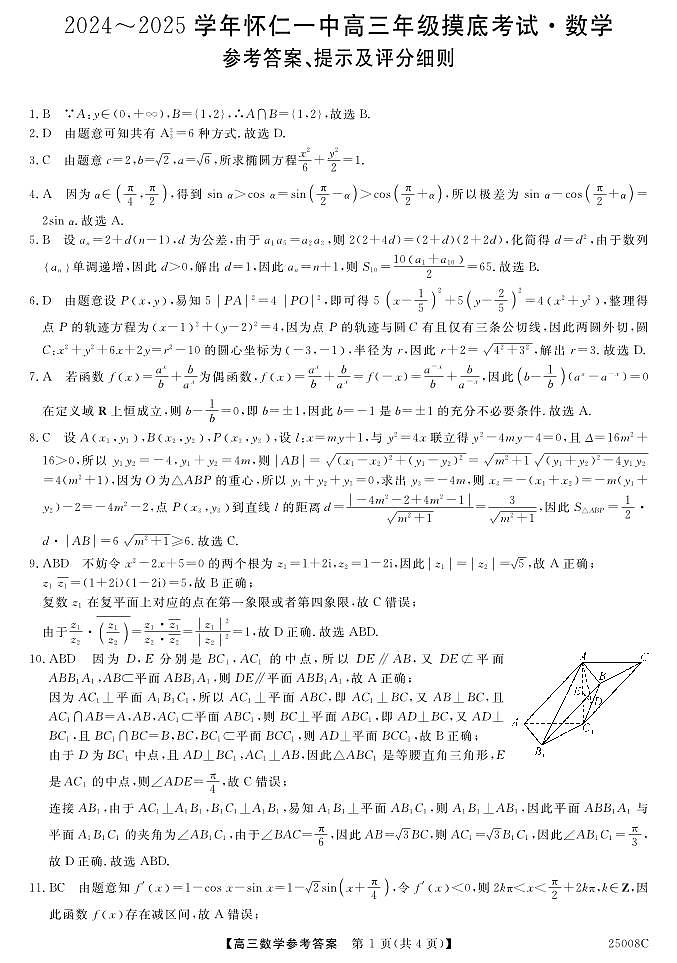 2024～2025 学年怀仁一中高三年级摸底考试·数学
参考答案、提示及评分细则
1. B ∵A:y∈(0,+∞),B={1,2},∴A∩B={1,2},故选 B.
2. D 由题意可知共有 A₃²=6 种方式.故选 D.
3. C 由题意 c=2,b=√2,a=√6,所求椭圆方程x²/6+y²/2=1.
4. A 因为 α∈(π/4,π/2),得到 sin α>cos α=sin(π/2-α)>cos(π/2+α),所以极差为 sin α-cos(π/2+α)=
2sin α.故选 A.
5. B 设 aₙ=2+d(n-1),d 为公差,由于 a₁a₅=a₂a₂,则 2(2+4d)=(2+d)(2+2d),化简得 d=d²,由于数列
{aₙ}单调递增,因此 d>0,解出 d=1,因此 aₙ=n+1,则 S₁₀=10(a₁+a₁₀)/2=65.故选 B.
6. D 由题意设 P(x,y),易知 5|PA|²=4|PO|²,即可得 5(x-1/5)²+5(y-2/5)²=4(x²+y²),整理得
点 P 的轨迹方程为(x-1)²+(y-2)²=4,因为点 P 的轨迹与圆 C 有且仅有三条公切线,因此两圆外切,圆
C:x²+y²+6x+2y=r²-10 的圆心坐标为(-3,-1),半径为 r,因此 r+2=√(4²+3²),解出 r=3.故选 D.
7. A 若函数 f(x)=aˣ/b+b/aˣ为偶函数,f(x)=aˣ/b+b/aˣ=f(-x)=a⁻ˣ/b+b/a⁻ˣ,因此(b-1/b)(aˣ-a⁻ˣ)=0
在定义域 R 上恒成立,则 b-1/b=0,即 b=±1,因此 b=-1 是 b=±1 的充分不必要条件.故选 A.
8. C 设 A(x₁,y₁),B(x₂,y₂),P(x₃,y₃),设 l:x=my+1,与 y²=4x 联立得 y²-4my-4=0,且 Δ=16m²+
16>0,所以 y₁y₂=-4,y₁+y₂=4m,则|AB|=√((x₁-x₂)²+(y₁-y₂)²)=√(m²+1)√((y₁+y₂)²-4y₁y₂)
=4(m²+1),因为 O 为△ABP 的重心,所以 y₁+y₂+y₃=0,求出 y₃=-4m,则 x₃=-(x₁+x₂)=-m(y₁+
y₂)-2=-4m²-2,点 P(x₃,y₃)到直线 l 的距离 d=|-4m²-2+4m²-1|/√(m²+1)=3/√(m²+1),因此 S△ABP=1/2·
d·|AB|=6√(m²+1)≥6.故选 C.
9. ABD 不妨令 x²-2x+5=0 的两个根为 z₁=1+2i,z₂=1-2i,因此|z₁|=|z₂|=√5,故 A 正确;
z₁ z̅₁=(1+2i)(1-2i)=5,故 B 正确;
复数 z₁ 在复平面上对应的点在第一象限或者第四象限,故 C 错误;
由于z₁/z₂·(z₁/z₂)̅=z₁·z̅₁/z₂·z̅₂=|z₁|²/|z₂|²=1,故 D 正确.故选 ABD.
10. ABD 因为 D,E 分别是 BC₁,AC₁ 的中点,所以 DE∥AB,又 DE⊄平面
ABB₁A₁,AB⊂平面 ABB₁A₁,则 DE∥平面 ABB₁A₁,故 A 正确;
因为 AC₁⊥平面 A₁B₁C₁,所以 AC₁⊥平面 ABC,即 AC₁⊥BC,又 AB⊥BC,且
AC₁∩AB=A,AB,AC₁⊂平面 ABC₁,则 BC⊥平面 ABC₁,即 AD⊥BC,又 AD⊥
BC₁,且 BC₁∩BC=B,BC,BC₁⊂平面 BCC₁,则 AD⊥平面 BCC₁,故 B 正确;
由于 D 为 BC₁ 中点,且 AD⊥BC₁,AC₁⊥AB,因此△ABC₁ 是等腰直角三角形,E
是 AC₁ 的中点,则∠ADE=π/4,故 C 错误;
连接 AB₁,由于 AC₁⊥A₁B₁,B₁C₁⊥A₁B₁,易知 A₁B₁⊥平面 AB₁C₁,则 A₁B₁⊥AB₁,因此平面 ABB₁A₁ 与
平面 A₁B₁C₁ 的夹角为∠AB₁C₁,由于∠BAC=π/6,因此 AB=√3BC,则 AC₁=√3B₁C₁,因此∠AB₁C₁=π/3,
故 D 正确.故选 ABD.
A
C
B
E
D
A₁
C₁
B₁
11. BC 由题意知 f′(x)=1-cos x-sin x=1-√2sin(x+π/4),令 f′(x)<0,则 2kπ<x<π/2+2kπ,k∈Z,因
此函数 f(x)存在减区间,故 A 错误;
【高三数学参考答案 第 1 页(共 4 页)】
25008C